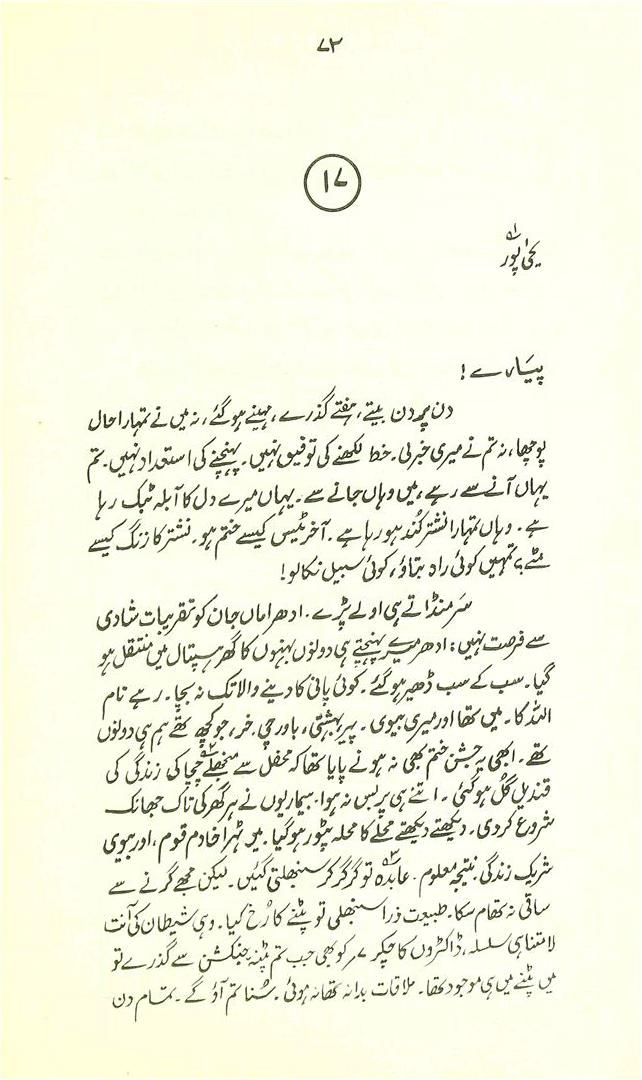 ۷۲
۱۷
یحیٰ پور
پیارے!
دن پر دن بیتے، ہفتے گذرے، مہینے ہو گئے، نہ میں نے تمہارا حال
پوچھا، نہ تم نے میری خبر لی۔ خط لکھنے کی توفیق نہیں۔ پہنچنے کی استعداد نہیں۔ تم
یہاں آنے سے رہے، میں وہاں جانے سے۔ یہاں میرے دل کا آبلہ ٹپک رہا
ہے۔ وہاں تمہارا نشتر کُند ہو رہا ہے۔ آخر ٹیس کیسے ختم ہو۔ نشتر کا زنگ کیسے
مٹے؟ تمہیں کوئی راہ بتاؤ، کوئی سبیل نکالو!
سر منڈاتے ہی اولے پڑے۔ ادھر اماں جان کو تقریبات شادی
سے فرصت نہیں: ادھر میرے پہنچتے ہی دونوں بہنوں کا گھر ہسپتال میں منتقل ہو
گیا۔ سب کے سب ڈھیر ہو گئے۔ کوئی پانی کا دینے والا تک نہ بچا۔ رہے نام
اللہ کا۔ میں تھا اور میری بیوی۔ پیر بہشتی، باورچی، خر، جو کچھ تھے ہم ہی دونوں
تھے۔ ابھی یہ جشن ختم بھی نہ ہونے پایا تھا کہ محفل سے منجھلے۲ چچا کی زندگی کی
قندیل گُل ہو گئی۔ اتنے ہی پر بس نہ ہوا۔ بیماریوں نے ہر گھر کی تاک جھانک
شروع کر دی۔ دیکھتے دیکھتے محلے کا محلہ پٹور ہو گیا۔ میں ٹہرا خادم قوم، اور بیوی
شریک زندگی۔ نتیجہ معلوم۔ عابدہ۳ تو گر گر کر سنبھلتی گئیں۔ لیکن مجھے گرنے سے
ساقی نہ تھام سکا۔ طبیعت ذرا سنبھلی تو پٹنے کا رُخ کیا۔ وہی شیطان کی آنت
لامتناہی سلسلہ، ڈاکٹروں کا چکر ۷؍ کو بھی جب تم پٹنہ جنکشن سے گذرے تو
میں پٹنے میں ہی موجود تھا۔ ملاقات بدا نہ تھا نہ ہوئی۔ سُنا تم آؤ گے۔ تمام دن